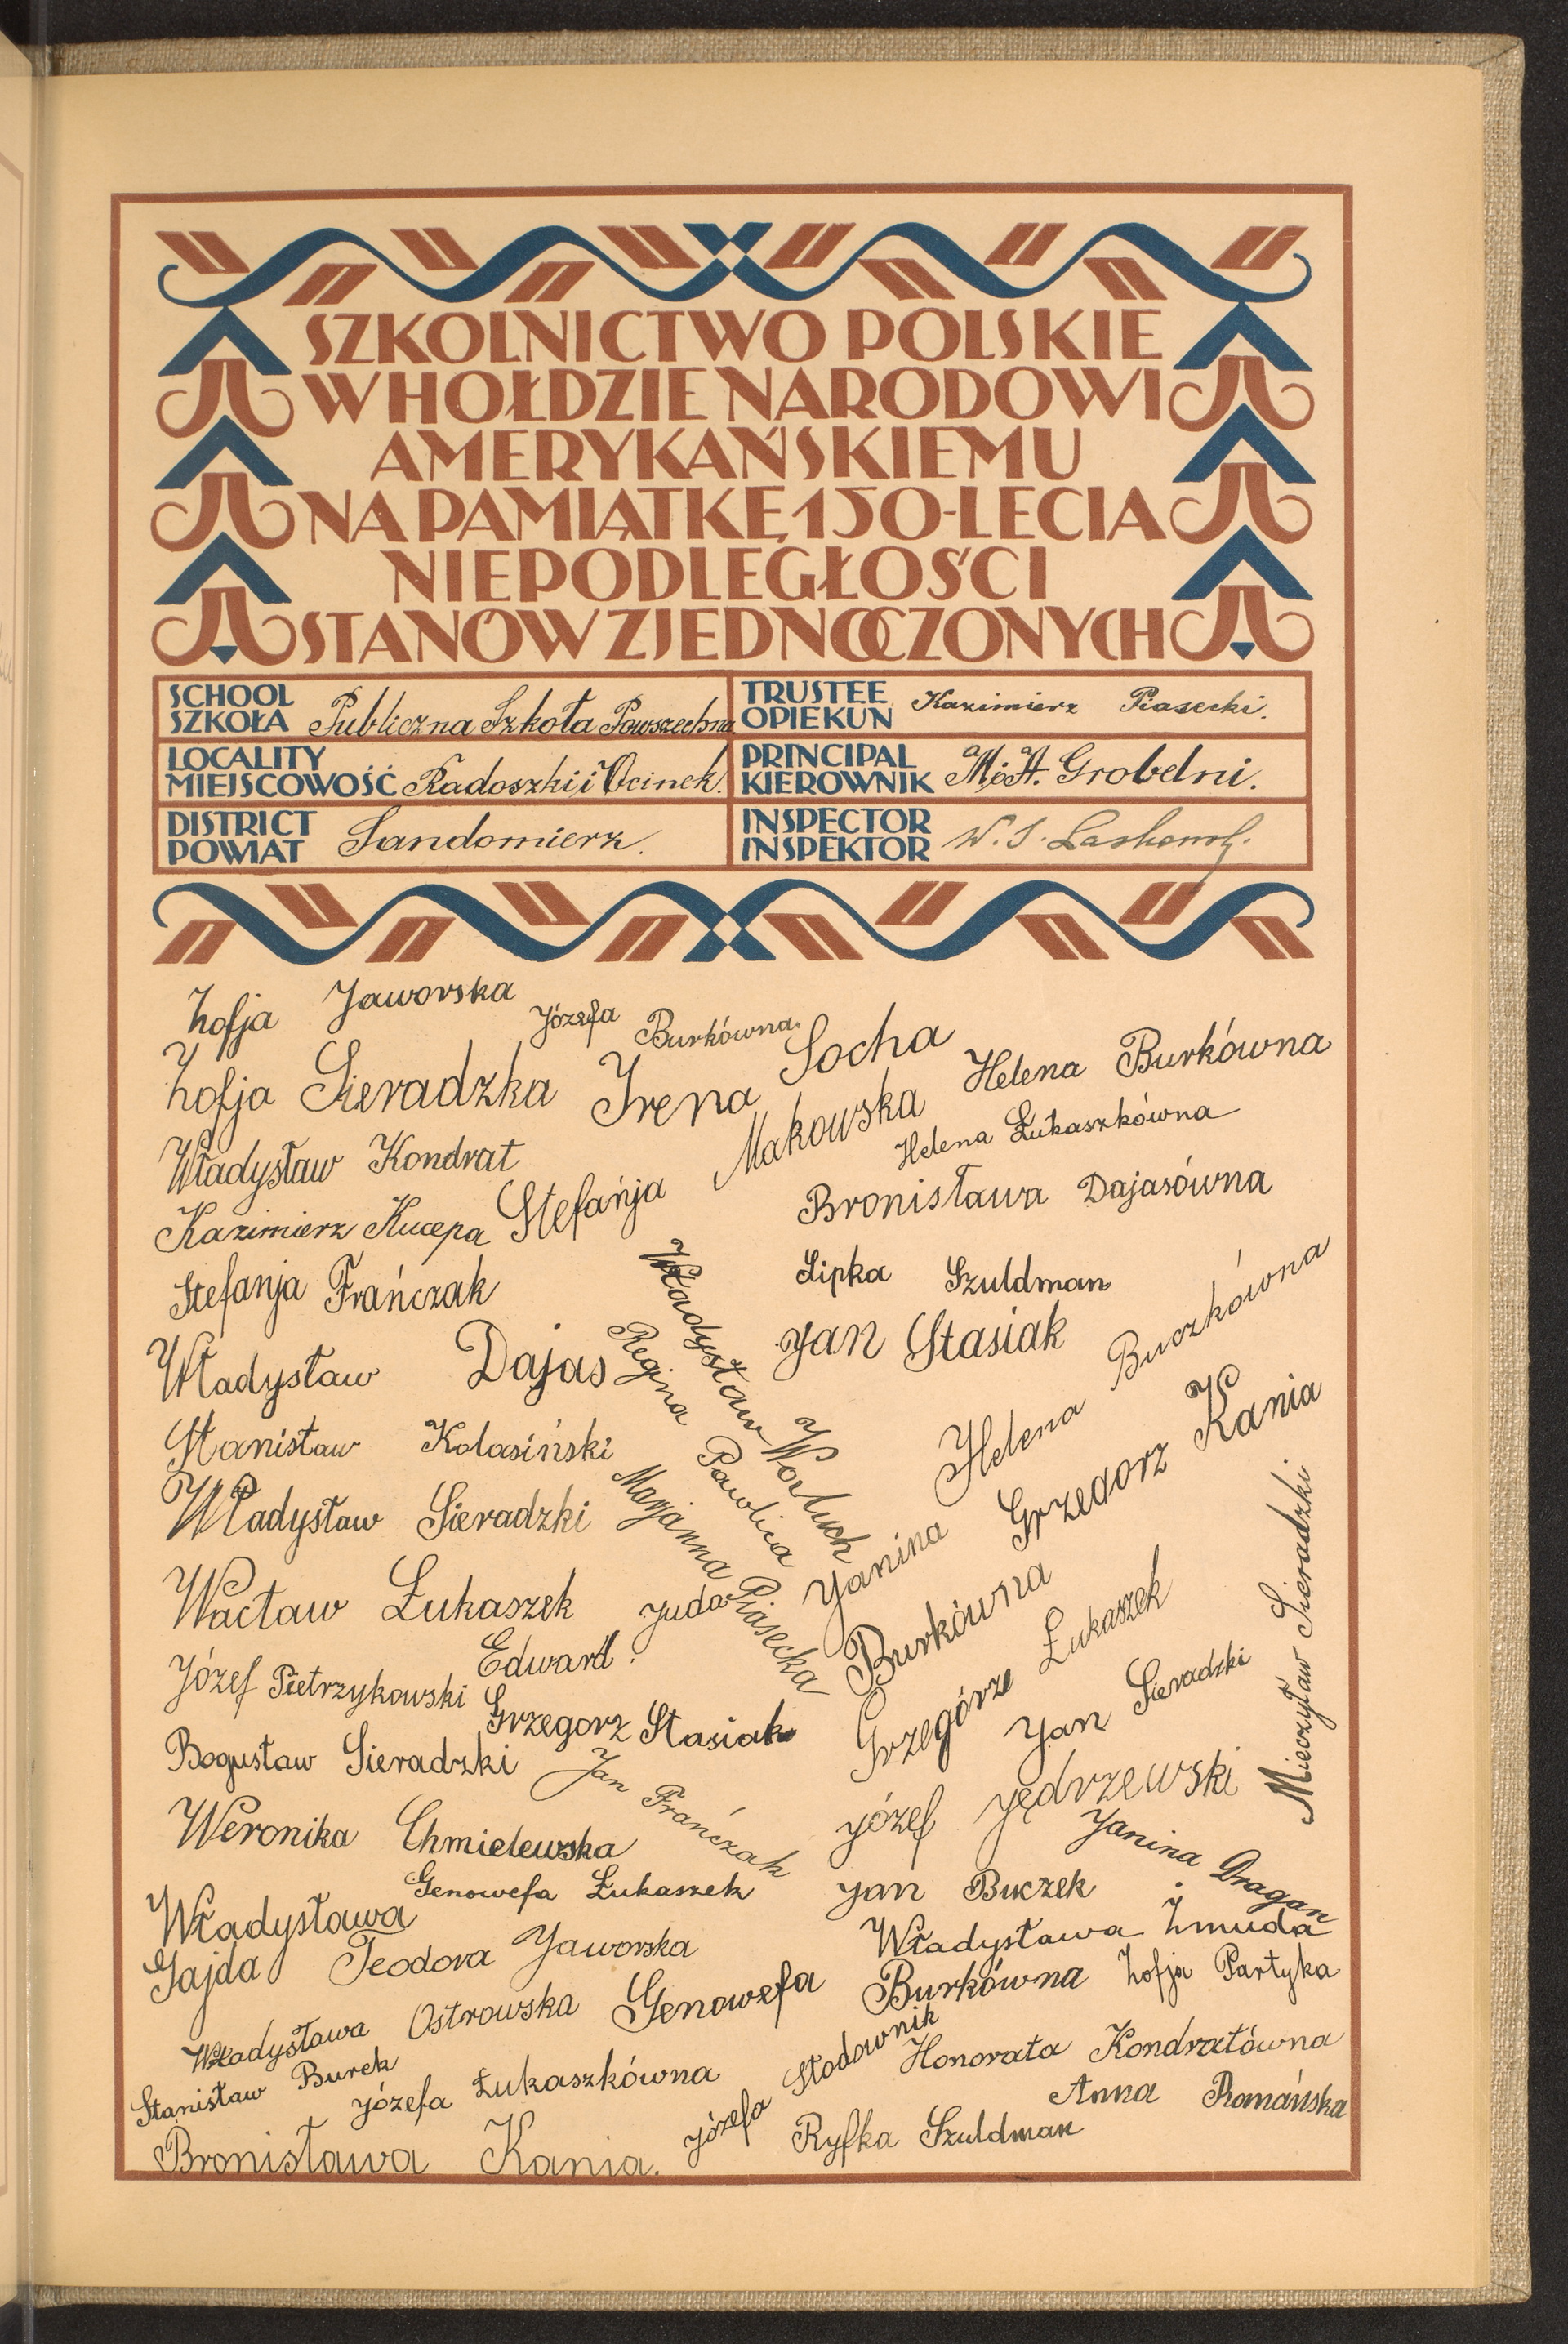 SZKOLNICTWO POLSKIE
W HOŁDZIE NARODOWI
AMERYKAŃSKIEMU
NA PAMIĄTKĘ 150-LECIA
NIEPODLEGŁOŚCI
STANÓW ZJEDNOCZONYCH
SCHOOL
SZKOŁA Publiczna Szkoła Powszechna
TRUSTEE
OPIEKUN Kazimierz Piasecki.
LOCALITY
MIEJSCOWOŚĆ Radoszki i Ocinek.
PRINCIPAL
KIEROWNIK M. i A. Grobelni.
DISTRICT
POWIAT Sandomierz.
INSPECTOR
INSPEKTOR W. S.
Zofja Jaworska
Józefa Burkówna.
Zofja Sieradzka
Irena Socha
Helena Burkówna
Władysław Kondrat
Stefańja Makowska
Helena Łukaszkówna
Kazimierz Kucepa
Bronisława Dajasówna
Stefanja Frańczak
Lipka Szuldman
Władysław Dajas
Jan Stasiak
Władysław Worłuch
Regina Pawlica
Marjanna Piasecka
Helena Buczkówna
Stanisław Kolasiński
Grzegorz Kania
Władysław Sieradzki
Janina Burkówna
Wacław Łukaszek
Juda Edward.
Grzegórz Łukaszek
Mieczysław Sieradzki
Józef Pietrzykowski
Grzegorz Stasiak
Jan Sieradzki
Bogusław Sieradzki
Jan Frańczak
Józef Jędrzewski
Weronika Chmielewska
Janina Dragan
Genowefa Łukaszek
Jan Buczek
Władysława Gajda
Władysława Żmuda
Teodora Jaworska
Genowefa Burkówna
Zofja Partyka
Władysława Ostrowska
Józefa Stodownik
Honorata Kondratówna
Stanisław Burek
Józefa Łukaszkówna
Anna Romańska
Bronisława Kania.
Ryfka Szuldman